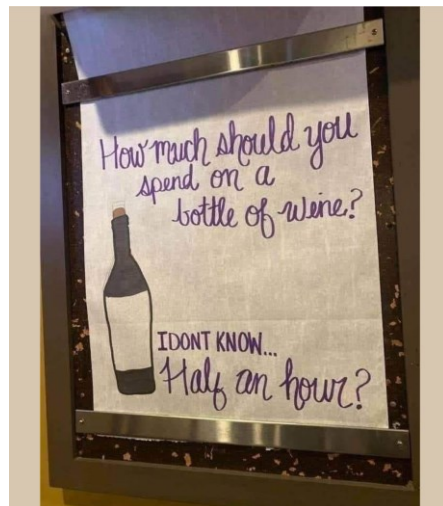 How much should you
spend on a
bottle of wine?
I DONT KNOW...
Half an hour?